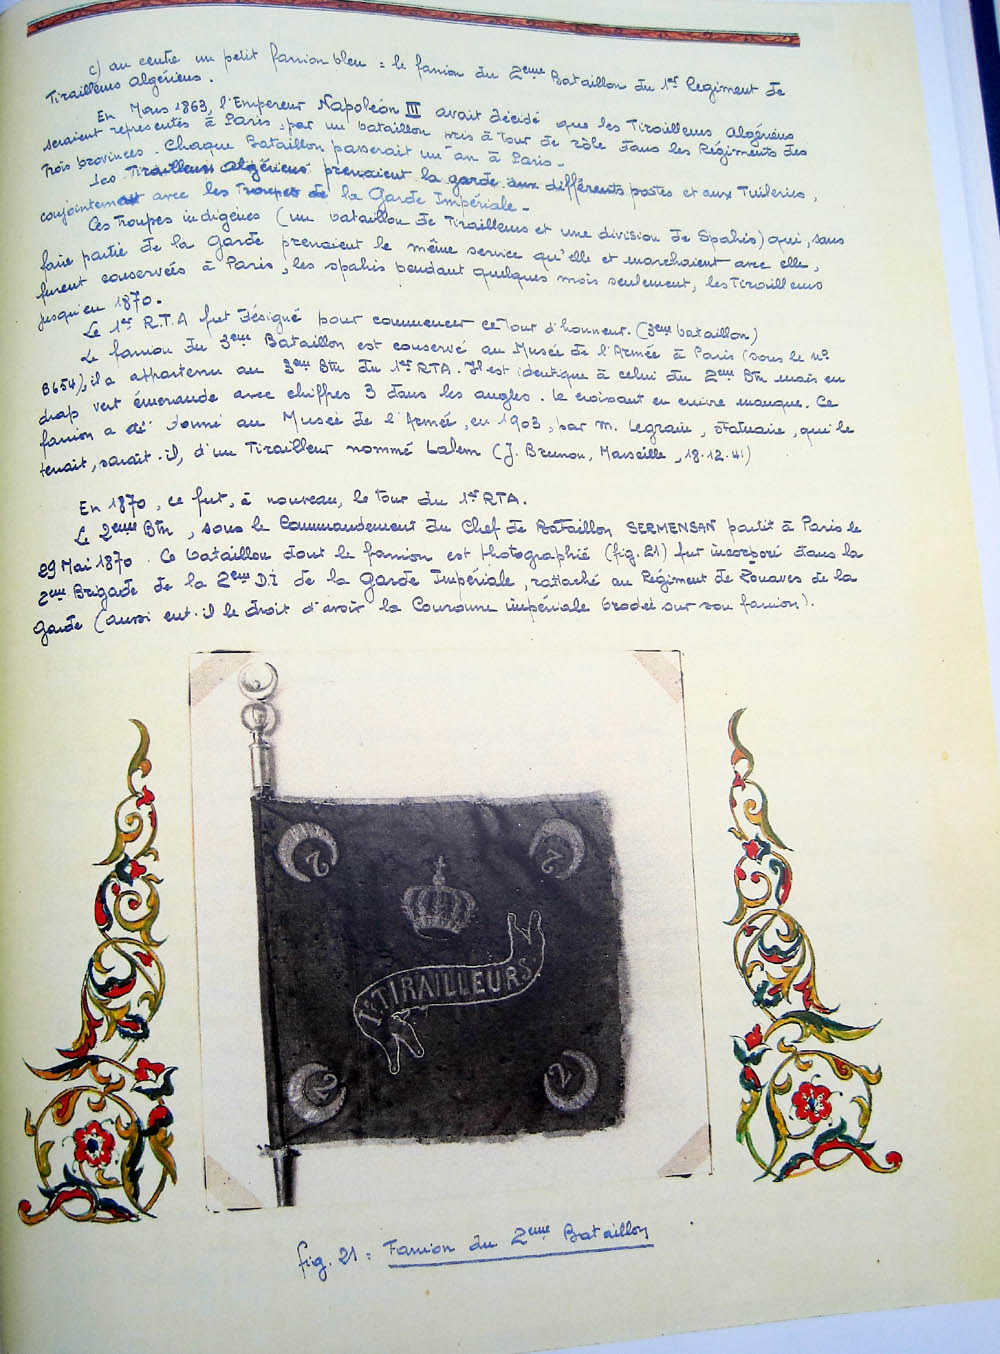 c) au centre un petit fanion bleu : le fanion du 2eme Bataillon du 1er Régiment de
Tirailleurs Algériens.
En Mars 1863, l'Empereur Napoléon III avait décidé que les Tirailleurs Algériens
seraient représentés à Paris, par un bataillon pris à tour de rôle dans les Régiments des
Trois provinces. Chaque Bataillon passerait un an à Paris.
Les Tirailleurs Algériens prenaient la garde aux différents postes et aux Tuileries,
conjointement avec les Troupes de la Garde Impériale.
Ces Troupes indigènes (un bataillon de Tirailleurs et une division de Spahis) qui, sans
faire partie de la Garde prenaient le même service qu'elle et marchaient avec elle,
furent conservées à Paris, les spahis pendant quelques mois seulement, les Tirailleurs
jusqu'en 1870.
Le 1er R.T.A fut désigné pour commencer ce Tour d'honneur. (3eme bataillon)
Le fanion du 3eme Bataillon est conservé au Musée de l'Armée à Paris (sous le no
B654), il a appartenu au 3eme Btn du 1er RTA. Il est identique à celui du 2eme Btn mais en
drap vert émeraude avec chiffres 3 dans les angles. Le croissant en cuivre manque. Ce
fanion a été donné au Musée de l'Armée, en 1903, par M. Legrain, statuaire, qui le
tenait, paraît-il, d'un Tirailleur nommé Lalem (J. Brunon, Marseille, 18.12.41)
En 1870, ce fut, à nouveau, le tour du 1er RTA.
Le 2eme Btn, sous le Commandement du Chef de Bataillon SERMENSAN partit à Paris le
29 Mai 1870. Ce bataillon dont le fanion est photographié (fig. 21) fut incorporé dans la
2eme Brigade de la 2eme D.I de la Garde Impériale, rattaché au Régiment de Zouaves de la
Garde (aussi eut-il le droit d'avoir la Couronne impériale brodée sur son fanion).
2 2
1er TIRAILLEURS.
2 2
fig. 21 : Fanion du 2eme Bataillon